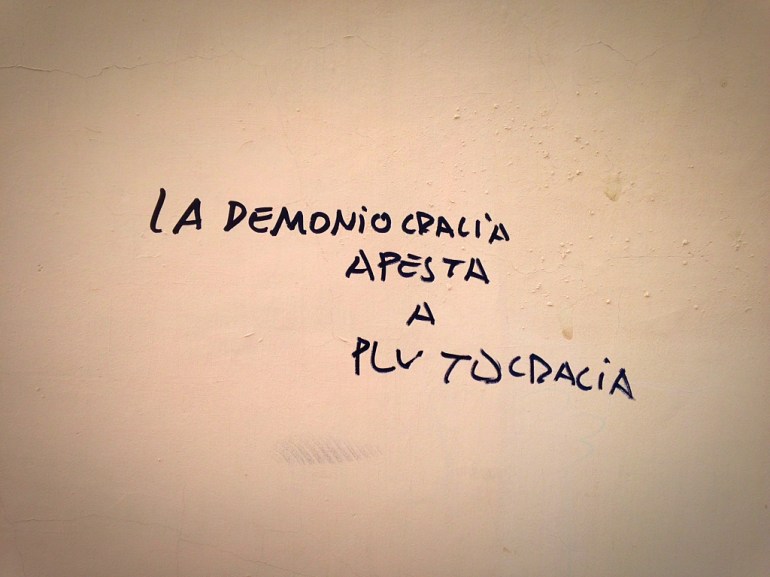 LA DEMONIOCRACIA
APESTA
A
PLUTOCRACIA